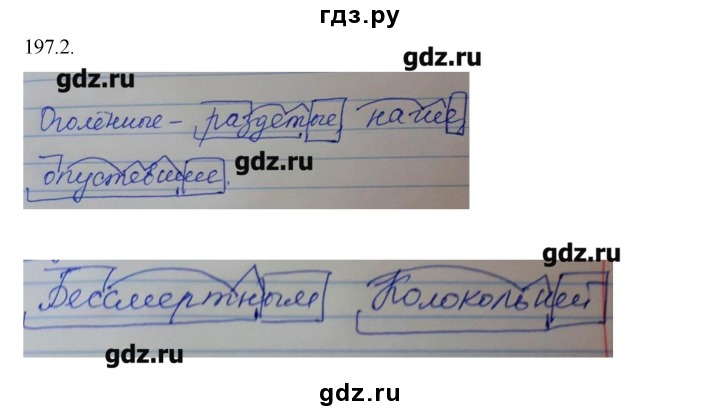 гдз.ру
197.2.
gdz.ru
gdz.ru
Оголённые – раздетые, нагие,
gdz.ru
опустевшие.
gdz.ru
Бессмертным Колокольней
gdz.ru
gdz.ru